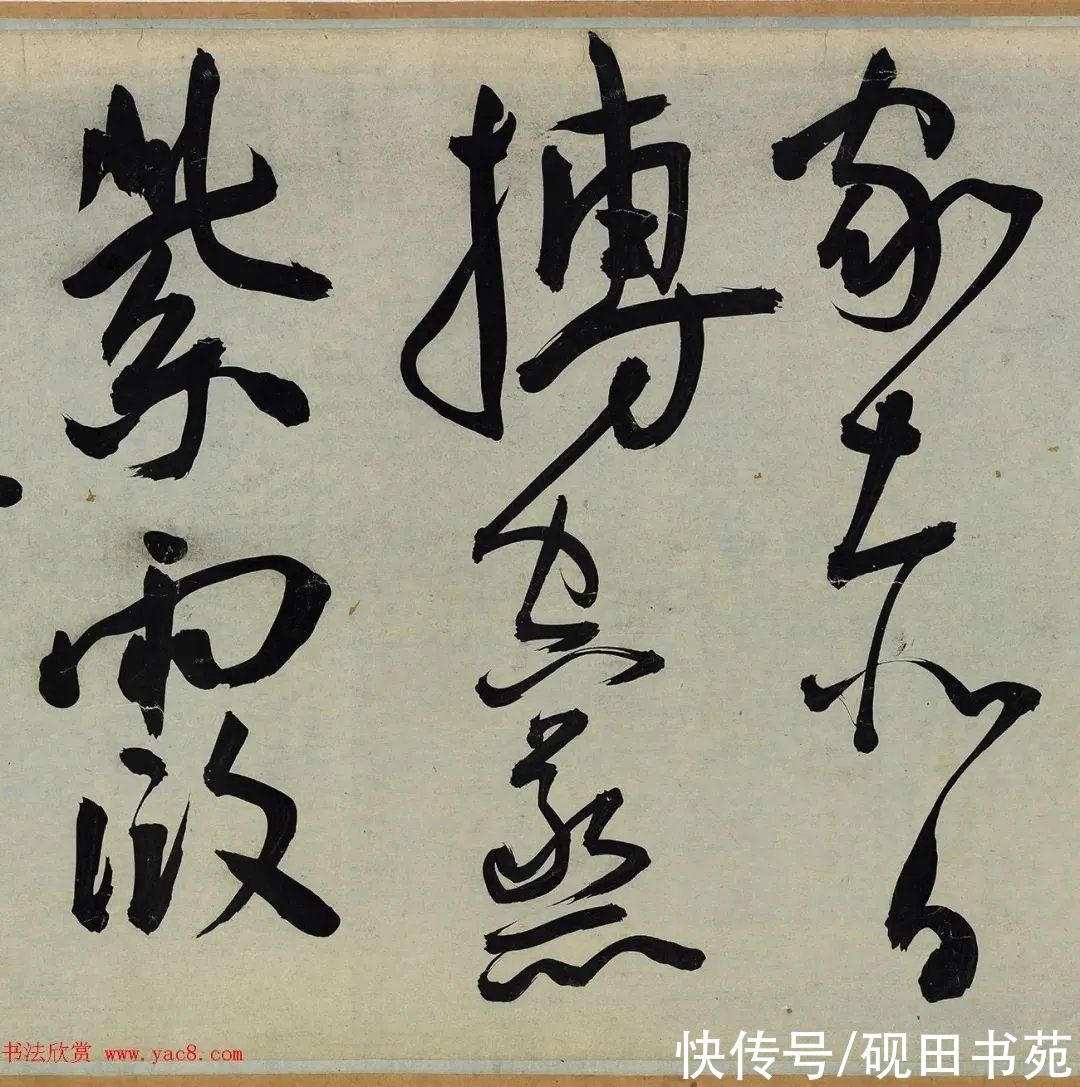 家赤日
摶空蒸
紫霞
书法欣赏 www.yac8.com
快传号/砚田书苑